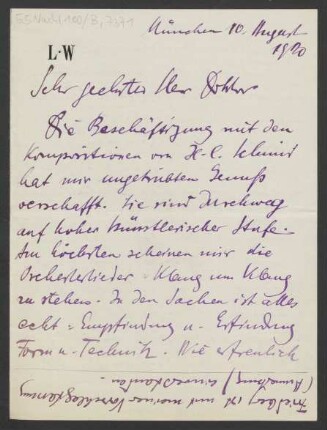 München 10. August
1920
L·W
Sehr geehrter Herr Doktor
Die Beschäftigung mit den
Kompositionen von H. C. Schmid
hat mir ungetrübten Genuß
verschafft. Sie sind durchweg
auf hoher künstlerischer Stufe.
Am höchsten scheinen mir die
Orchesterlieder Klang um Klang
zu stehen. In den Sachen ist alles
echt: Empfindung u. Erfindung
Form u. Technik. Wie erfreulich
ist mit meiner